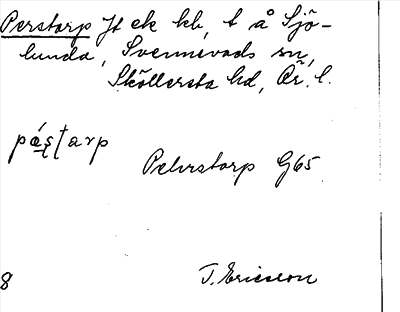 Perstorp Jt ek kb, t å Sjö-
lunda, Svennevads sn,
Sköllersta hd, Ör. l.
pǽʂtarp
Pehrstorp G65
8
T. Ericsson